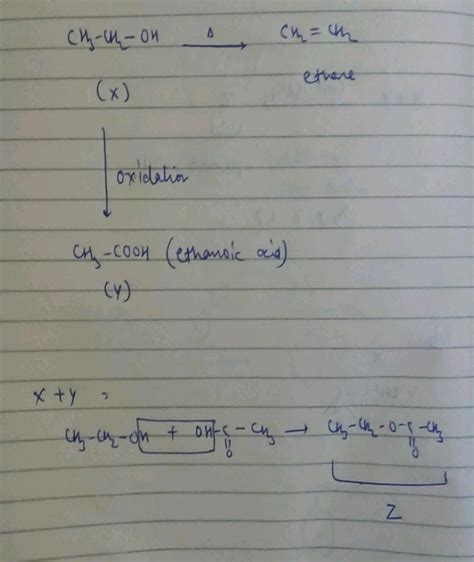 CH₃-CH₂-OH Δ→ CH₂=CH₂
(X) ethene
oxidation
CH₃-COOH (ethanoic acid)
(Y)
X+Y ⇒
CH₃-CH₂-OH + OH-C-CH₃ → CH₃-CH₂-O-C-CH₃
O O
Z